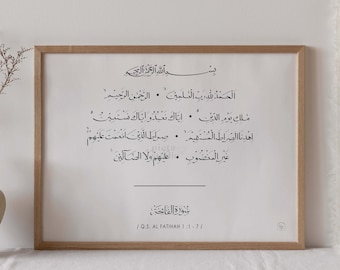 بسم الله الرحمن الرحيم
الحمد لله رب العلمين • الرحمن الرحيم
ملك يوم الدين • اياك نعبد واياك نستعين
اهدنا الصراط المستقيم • صراط الذين انعمت عليهم
غير المغضوب • عليهم ولا الضالين
سورة الفاتحة
( Q.S. AL FATIHAH 1 : 1 - 7 )